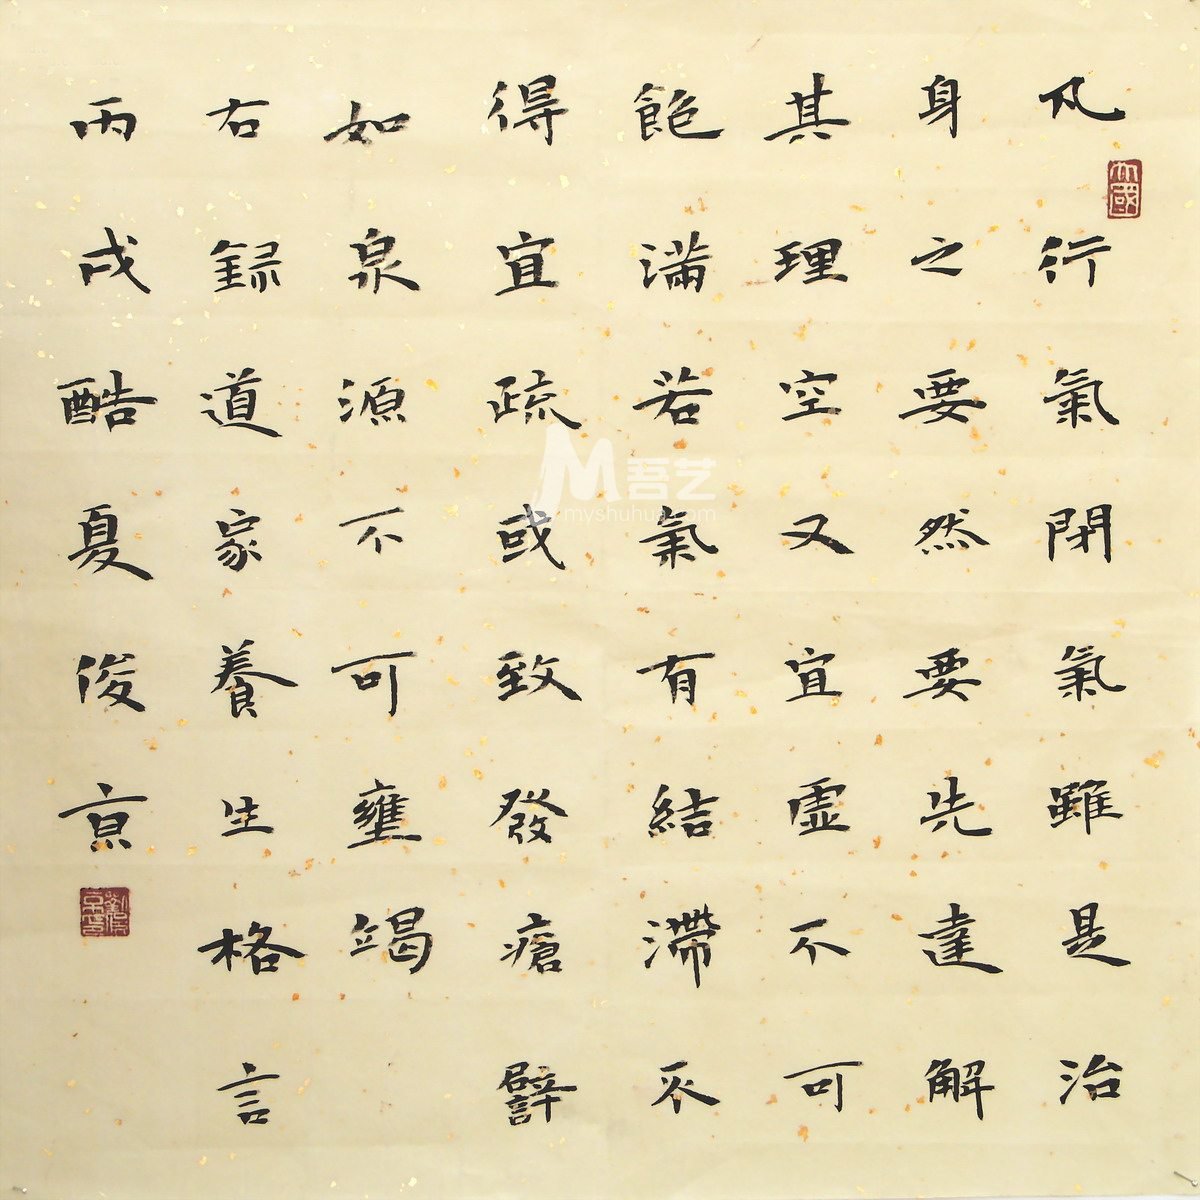 凡行氣閉氣雖是治
身之要然要先達解
其理空又宜虛不可
飽滿若氣有結滯不
得宜疏或致發瘡譬
如泉源不可壅竭
右録道家養生格言
丙戌酷夏俊京
吾艺
myshuhua.com